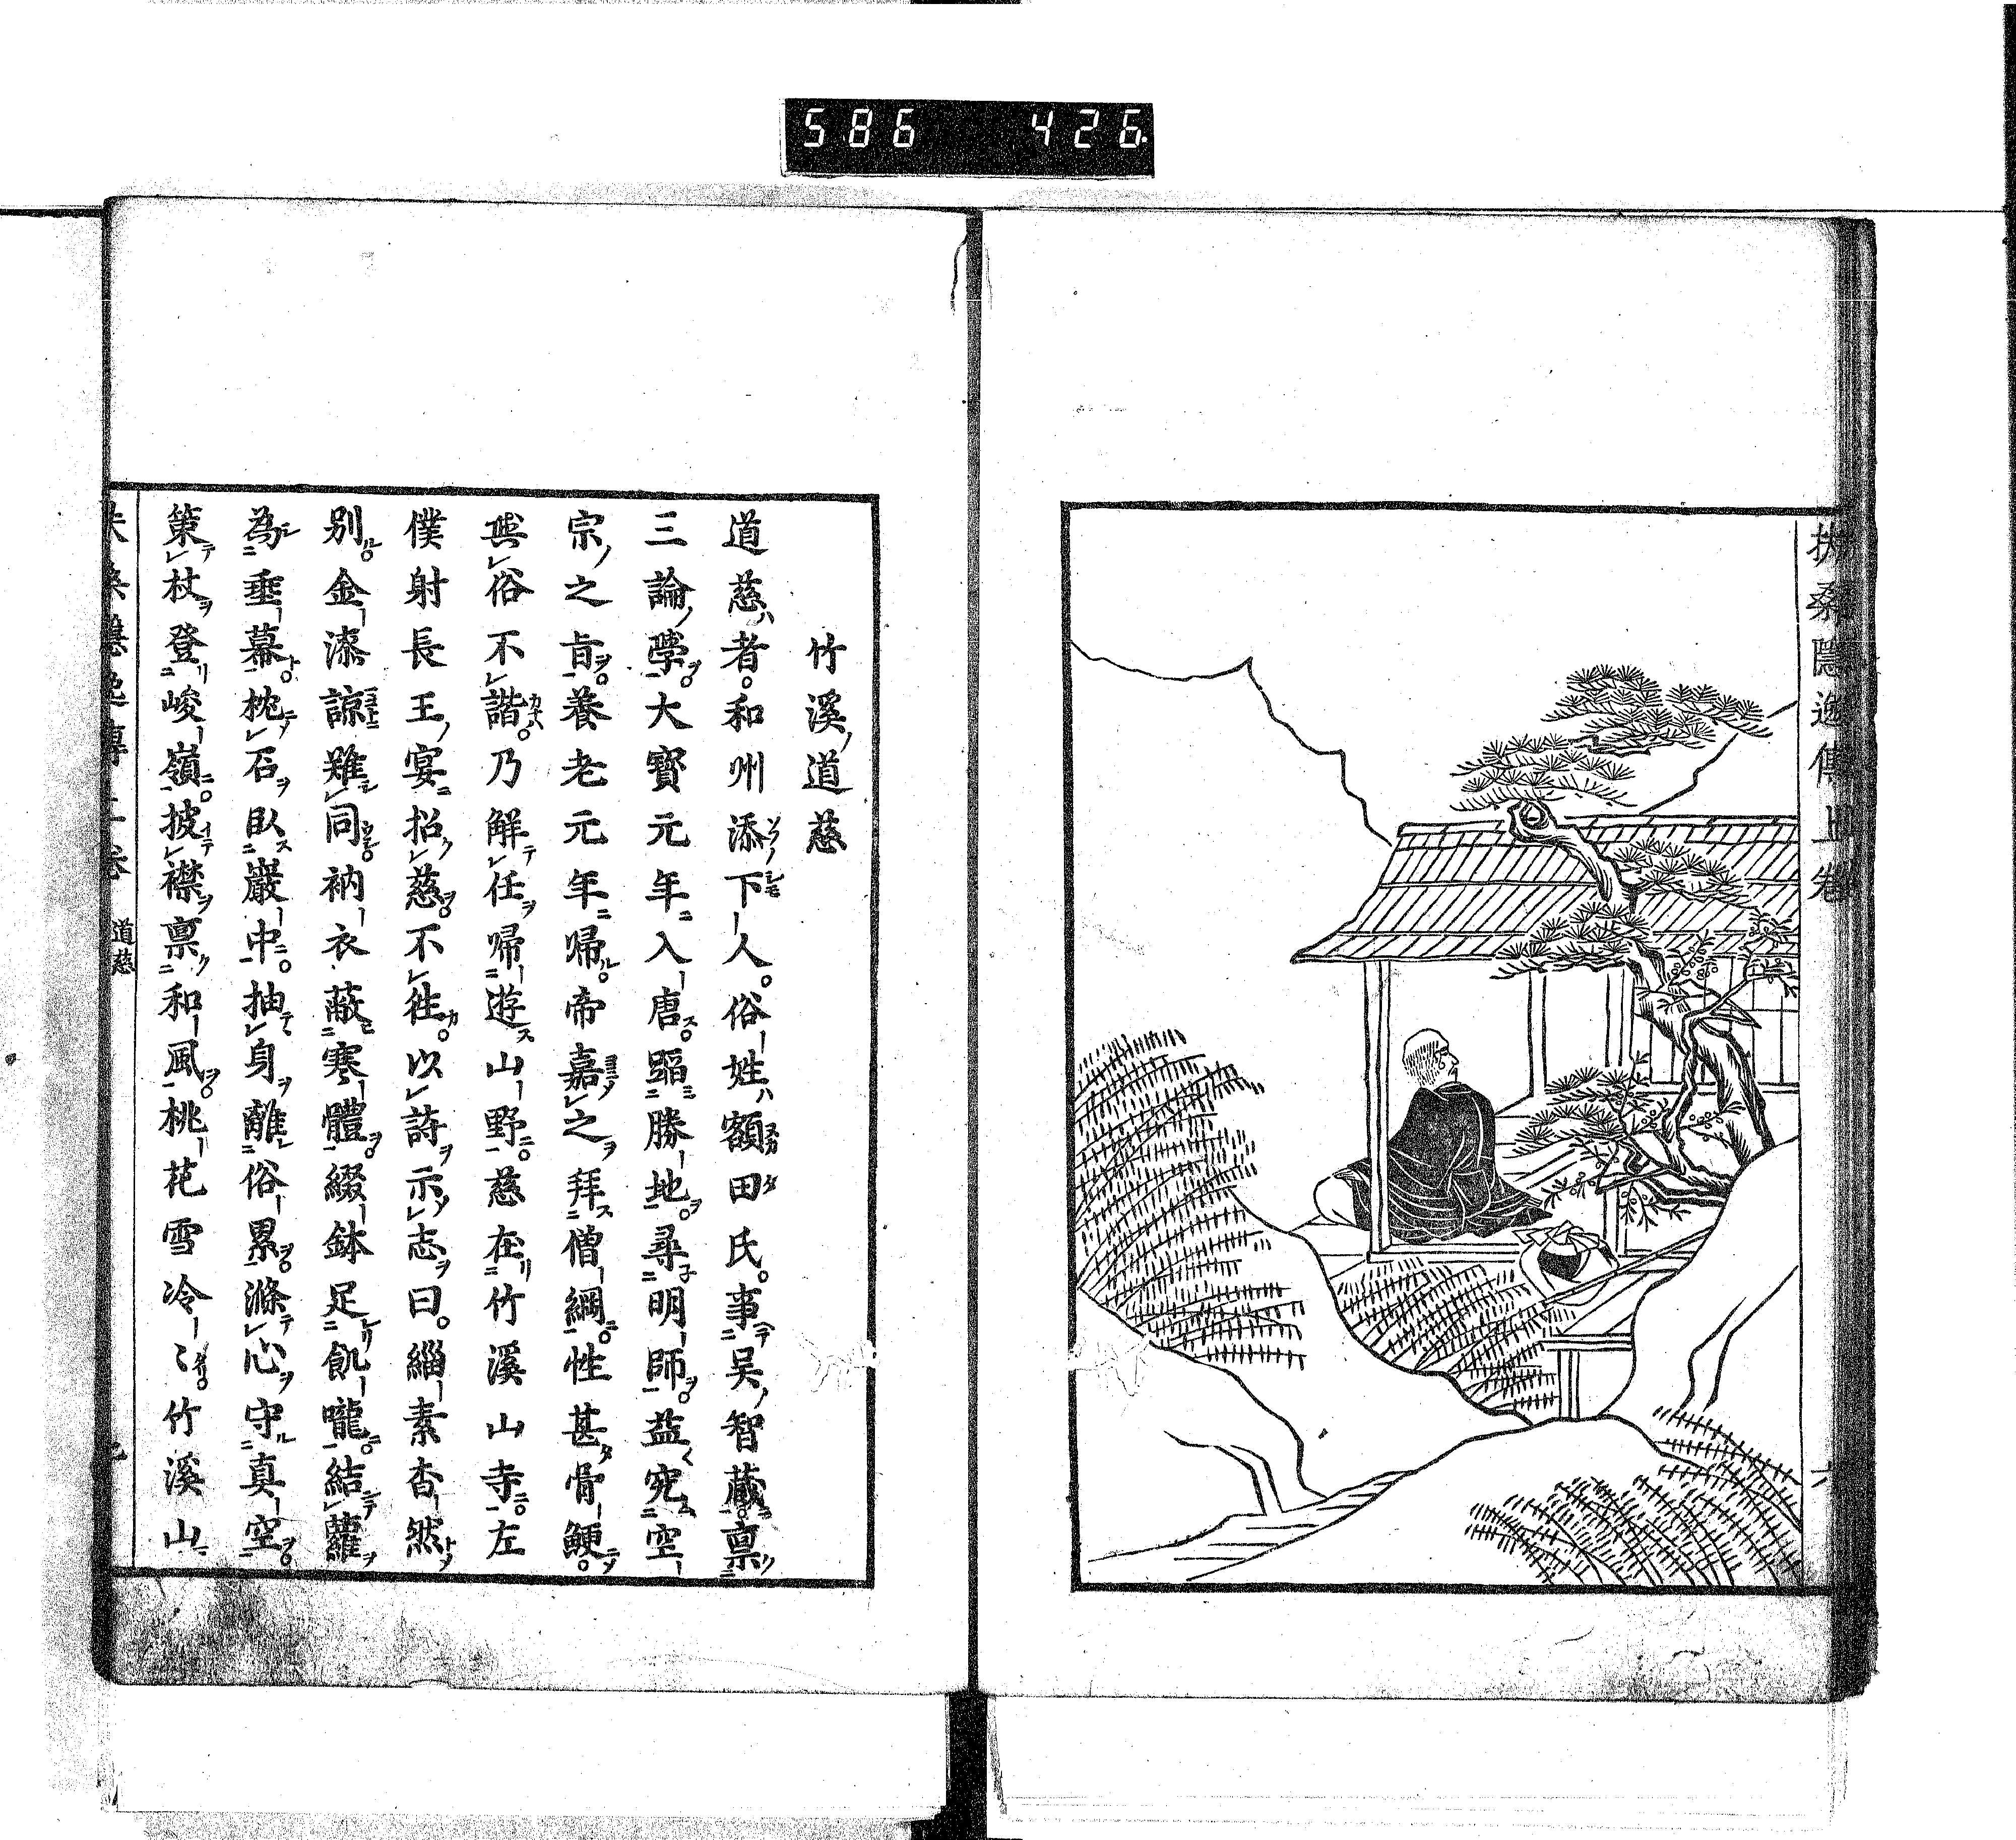 586 426
扶桑隱逸傳上卷
竹溪道慈
道慈者和州添下人俗姓額田氏事吴智藏禀
三論學大寳元年入唐蹈勝地尋明師益究空
宗之旨養老元年歸帝嘉之拜僧綱性甚骨鯁
與俗不諧乃解任歸遊山野慈在竹溪山寺左
僕射長王宴招慈不往以詩示志曰緇素杳然
别金漆諒難同衲衣蔽寒體綴鉢足飢嚨結蘿
為垂幕枕石臥巖中抽身離俗累滌心守真空
策杖登峻嶺披襟禀和風桃花雪冷〻竹溪山
道慈